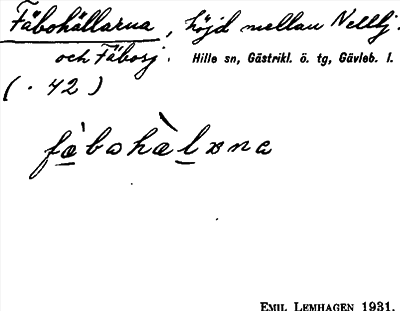 Fäbohällarna, höjd mellan Nellbj.
och Fäbosj. Hille sn, Gästrikl. ö. tg, Gävleb. l.
(· 42)
fä̀bohä̀lɒna
EMIL LEMHAGEN 1931.